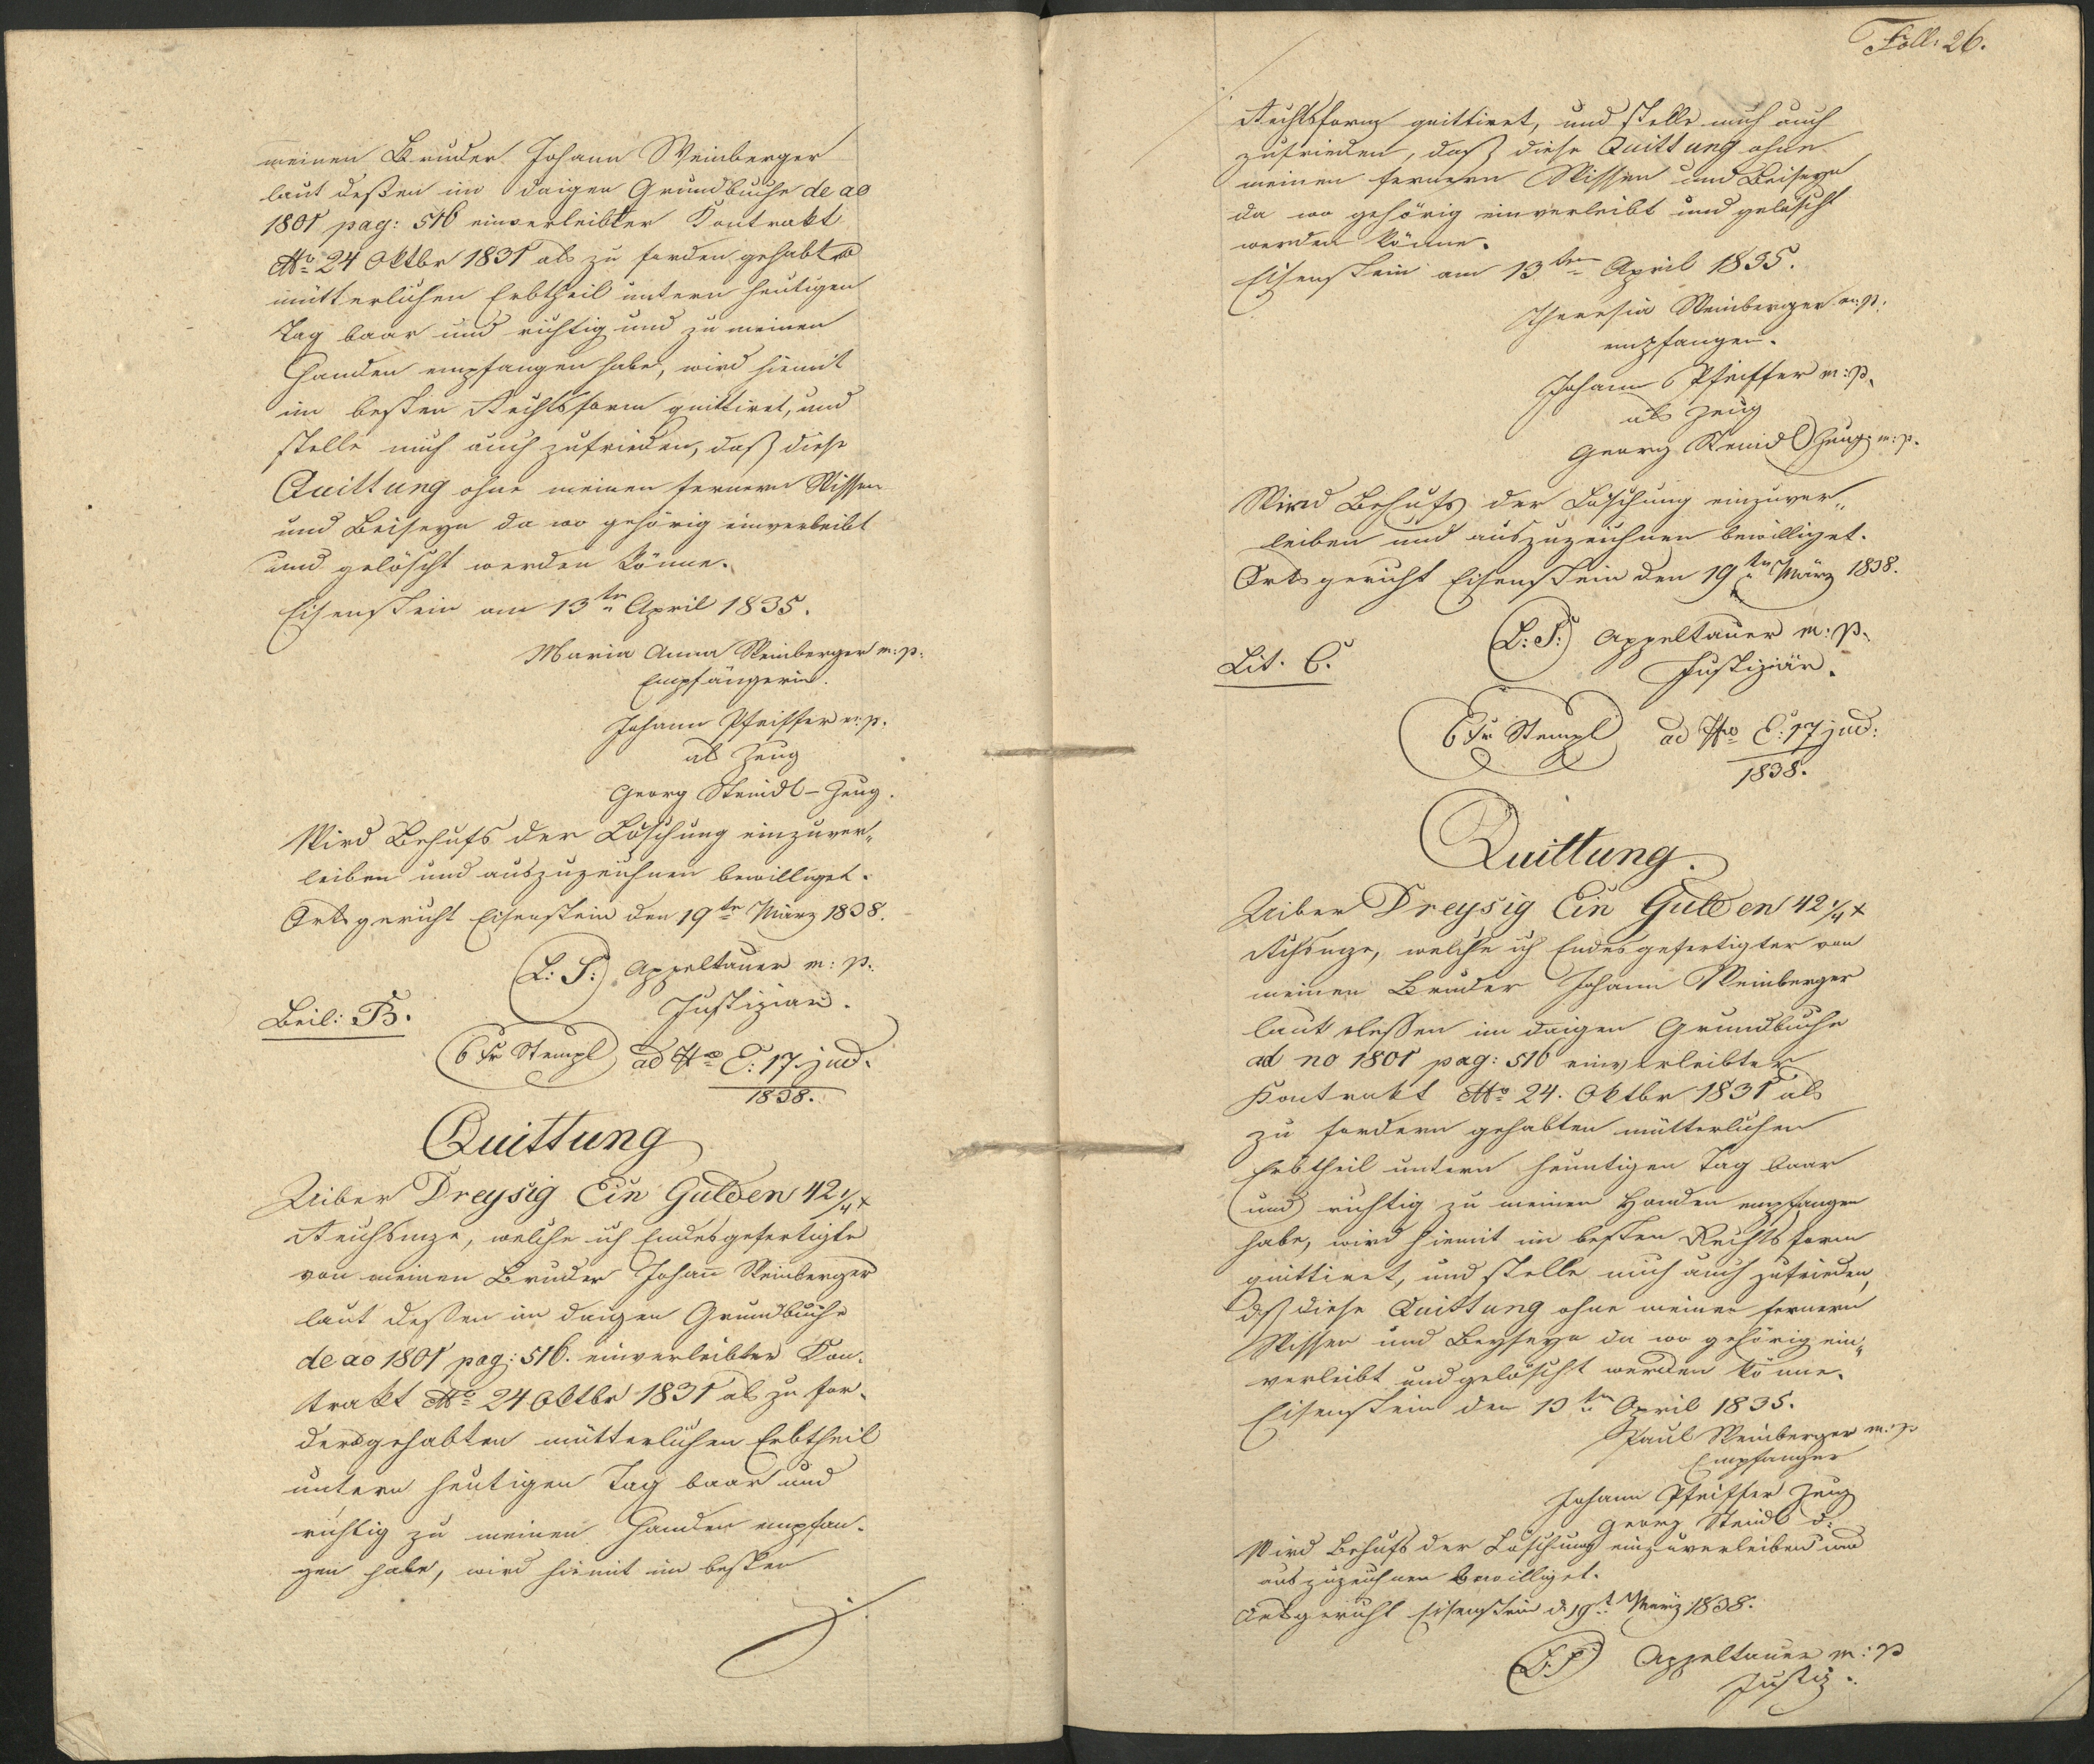 meinen Bruder Johann Weinberger
laut deßen im daigen Grundbuche de ao
1801 pag: 516 einverleibter Kontrakt
dtto 24 Oktbr 1831 als zu fordern gehabten
mütterlichen Erbtheil untern heutigen
Tag baar und richtig und zu meinen
Handen empfangen habe, wird hiemit
im besten Rechtsform quittiret, und
stelle mich auch zufrieden, daß diese
Quittung ohne meinen fernern Wissen
und Beiseyn da wo gehörig einverleibt
und gelöscht werden könne.
Eisenstein am 13ten April 1835.
Maria Anna Weinberger m:p:
Empfängerin.
Johann Pfeiffer m:p.
als Zeug
Georg Steindl – Zeug.
Wird Behufs der Löschung einzuver„
leiben und auszuzeichnen bewilliget.
Ortsgericht Eisenstein den 19tn März 1838.
(L: S:) Appeltauer m: p.
Justiziär.
Beil: B.
6 Kr Stempl ad No E: 17 jud.
1838.
Quittung
Uiber Dreysig Ein Gulden 42 1/4 x
Reichsmze, welche ich Endesgefertigte
von meinen Bruder Johan̄ Weinberger
laut deßen im daigen Grundbuche
de ao 1801 pag: 516. einverleibter Kon-
trakt dtto 24 Oktbr 1831 als zu for-
dern gehabten mütterlichen Erbtheil
untern heutigen Tag baar und
richtig zu meinen Handen empfan-
gen habe, wird hiemit im besten
Foll: 26.
Rechtsform quittiret, und stelle mich auch
zufrieden, daß diese Quittung ohne
meinen fernern Wissen und Beiseyn
da wo gehörig einverleibt und gelöscht
werden könne.
Eisenstein am 13ten April 1835.
Theresia Weinberger m:p:
empfangen.
Johann Pfeiffer m:p.
als Zeug
Georg Steindl Zeug m:p.
Wird Behufs der Löschung einzuver„
leiben und auszuzeichnen bewilliget.
Ortsgericht Eisenstein den 19tn März 1838.
(L: S:) Appeltauer m: p.
Justiziär.
Lit. C.
6 Kr Stempl ad No E: 17 jud:
1838.
Quittung.
Uiber Dreysig Ein Gulden 42 1/4 x
Rchsmze, welche ich Endesgefertigter von
meinen Bruder Johann Weinberger
laut dessen im daigen Grundbuche
ad no 1801 pag: 516 einverleibter
Kontrakt dtto 24. Oktbr 1831 als
zu fordern gehabten mütterlichen
Erbtheil untern heuntigen Tag baar
und richtig zu meinen Handen empfangen
habe, wird hiemit im besten Rechtsform
quittiret, und stelle mich auch zufrieden,
daß diese Quittung ohne meinen fernern
Wissen und Beyseyn da wo gehörig ein„
verleibt und gelöscht werden könne.
Eisenstein den 13tn April 1835.
Paul Weinberger m:p
Empfanger
Johann Pfeiffer Zeug
Georg Steindl d:
Wird Behufs der Löschung einzuverleiben und
auszuzeichnen bewilliget.
Ortsgericht Eisenstein d. 19t März 1838.
(L: S) Appeltauer m: p
Justiz.